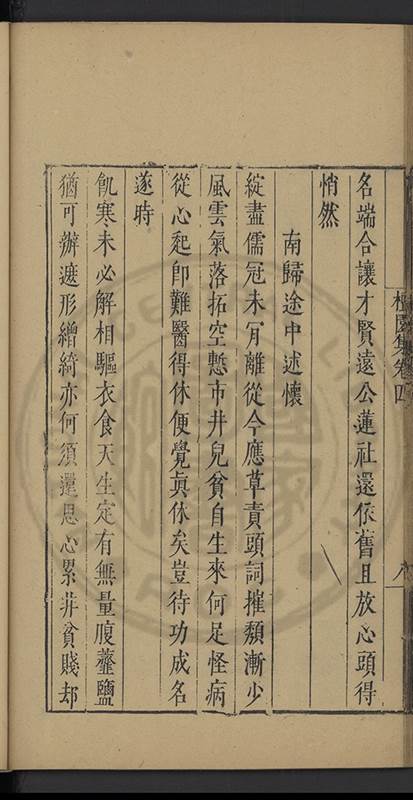 名端合讓才賢遠公蓮社還依舊且放心頭得
悄然
南歸途中述懷
綻盡儒冠未肎離從今應草責頭詞摧頹漸少
風雲氣落拓空慙市井兒貧自生來何足怪病
從心起卽難醫得休便覺眞休矣豈待功成名
遂時
飢寒未必解相驅衣食天生定有無量腹虀鹽
猶可辦遮形繒綺亦何須還思心累非貧賤却
園集卷四